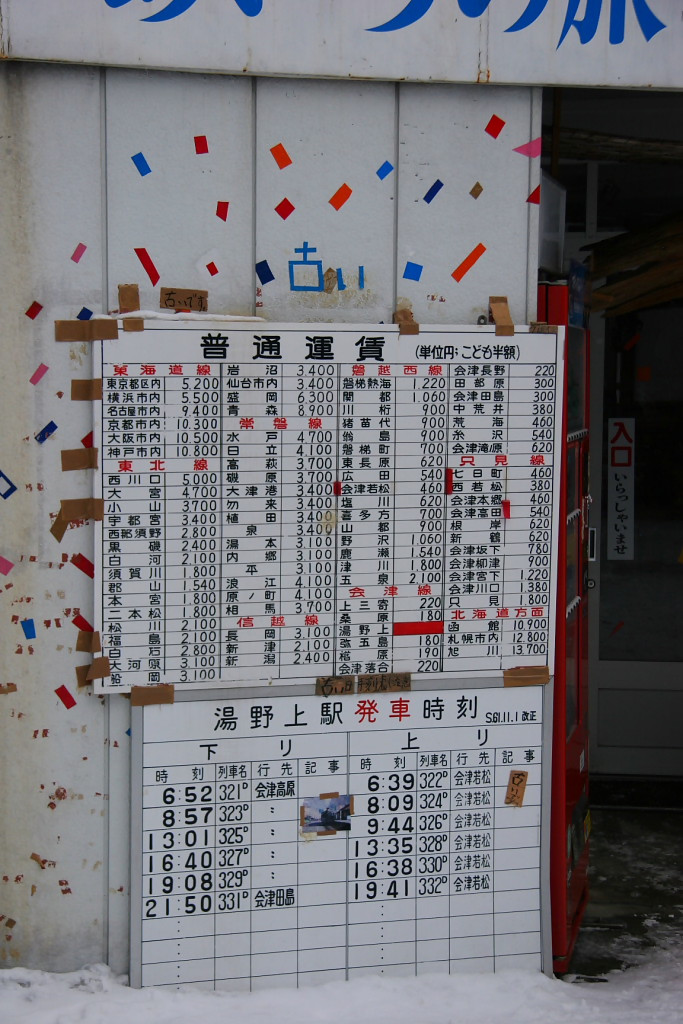 の旅
古い
古いです
普通運賃 (単位円;こども半額)
東海道線
東京都区内 5,200
横浜市内 5,500
名古屋市内 9,400
京都市内 10,300
大阪市内 10,500
神戸市内 10,800
東北線
西川口 5,000
大宮 4,700
小山 3,700
宇都宮 3,400
西那須野 2,800
黒磯 2,400
白河 2,100
須賀川 1,800
郡山 1,540
本宮 1,800
二本松 1,800
松川 2,100
福島 2,100
白石 2,800
大河原 3,100
船岡 3,100
岩沼 3,400
仙台市内 3,400
盛岡 6,300
青森 8,900
常磐線
水戸 4,700
日立 4,100
高萩 3,700
磯原 3,700
大津港 3,400
勿来 3,400
植田 3,400
泉 3,400
湯本 3,100
内郷 3,100
平 3,100
浪江 4,100
原ノ町 4,100
相馬 3,700
信越線
長岡 3,100
新津 2,100
新潟 2,400
磐越西線
磐梯熱海 1,220
関都 1,060
川桁 900
猪苗代 900
翁島 900
磐梯町 700
東長原 620
広田 540
会津若松 460
塩川 620
喜多方 700
山都 900
野沢 1,060
鹿瀬 1,540
津川 1,800
五泉 2,100
会津線
上三寄 220
桑原 180
湯野上
弥五島 180
楢原 190
会津落合 220
会津長野 220
田部原 300
会津田島 300
中荒井 380
荒海 460
糸沢 540
会津滝ノ原 620
只見線
七日町 460
西若松 380
会津本郷 460
会津高田 540
根岸 620
新鶴 620
会津坂下 780
会津柳津 900
会津宮下 1,220
会津川口 1,380
只見 1,800
北海道方面
函館 10,900
札幌市内 12,800
旭川 13,700
湯野上駅発車時刻 S.61.11.1改正
下り
時刻 列車名 行先 記事
6:52 321D 会津高原
8:57 323D 〃
13:01 325D 〃
16:40 327D 〃
19:08 329D 〃
21:50 331D 会津田島
上り
時刻 列車名 行先 記事
6:39 322D 会津若松
8:09 324D 会津若松
9:44 326D 会津若松
13:35 328D 会津若松
16:38 330D 会津若松
19:41 332D 会津若松
入口
いらっしゃいませ